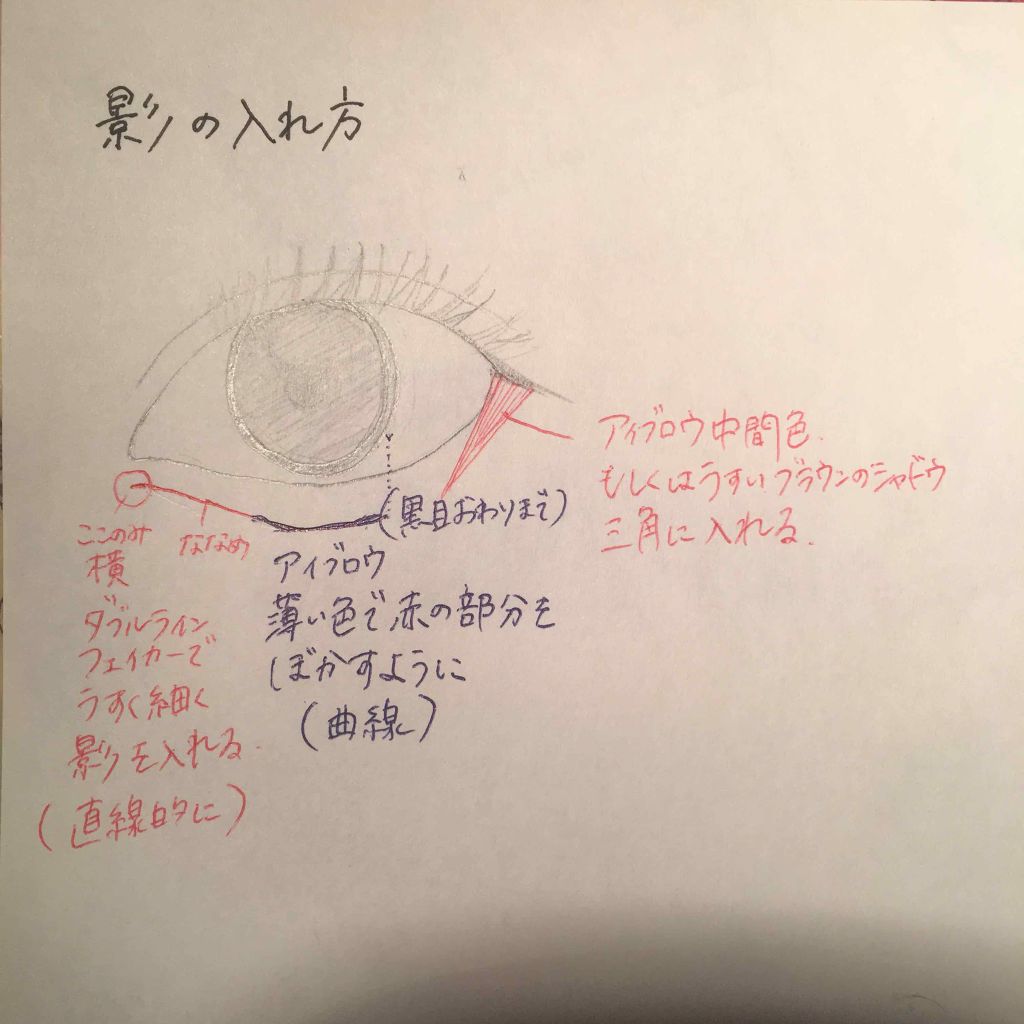 影の入れ方
アイブロウ中間色.
もしくはうすいブラウンのシャドウ
三角に入れる.
(黒目おわりまで)
ここのみ
横
ななめ
ダブルライン
フェイカーで
うすく細く
影を入れる.
(直線的に)
アイブロウ
薄い色で赤の部分を
ぼかすように
(曲線)